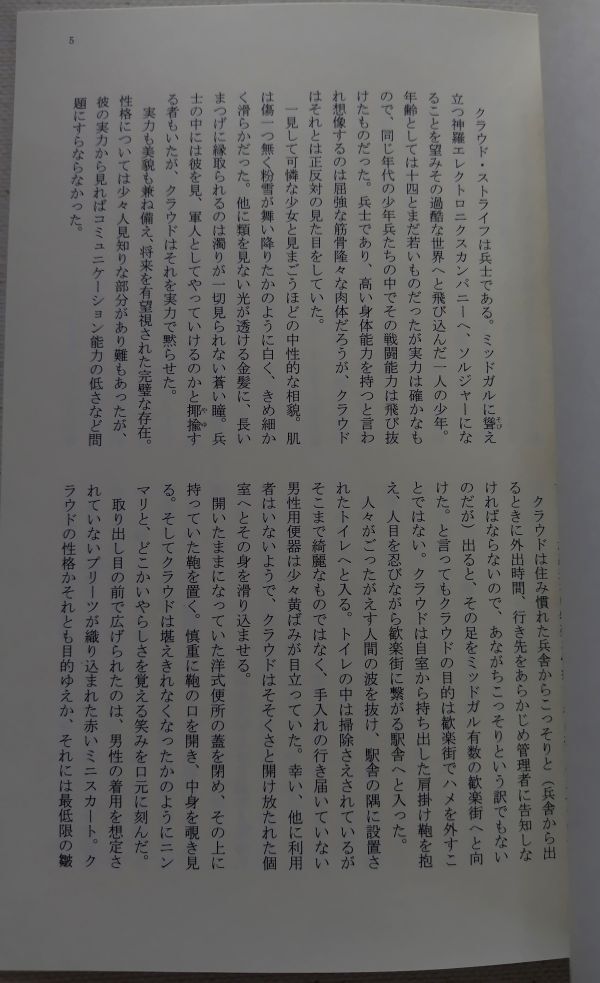 5
クラウド・ストライフは兵士である。ミッドガルに聳え
そび
立つ神羅エレクトロニクスカンパニーへ、ソルジャーにな
ることを望みその過酷な世界へと飛び込んだ一人の少年。
年齢としては十四とまだ若いものだったが実力は確かなも
ので、同じ年代の少年兵たちの中でその戦闘能力は飛び抜
けたものだった。兵士であり、高い身体能力を持つと言わ
れ想像するのは屈強な筋骨隆々な肉体だろうが、クラウド
はそれとは正反対の見た目をしていた。
一見して可憐な少女と見まごうほどの中性的な相貌。肌
は傷一つ無く粉雪が舞い降りたかのように白く、きめ細か
く滑らかだった。他に類を見ない光が透ける金髪に、長い
まつげに縁取られるのは濁りが一切見られない蒼い瞳。兵
士の中には彼を見、軍人としてやっていけるのかと揶揄す
やゆ
る者もいたが、クラウドはそれを実力で黙らせた。
実力も美貌も兼ね備え、将来を有望視された完璧な存在。
性格については少々人見知りな部分があり難もあったが、
彼の実力から見ればコミュニケーション能力の低さなど問
題にすらならなかった。
クラウドは住み慣れた兵舎からこっそりと（兵舎から出
るときに外出時間、行き先をあらかじめ管理者に告知しな
ければならないので、あながちこっそりという訳でもない
のだが）出ると、その足をミッドガル有数の歓楽街へと向
けた。と言ってもクラウドの目的は歓楽街でハメを外すこ
とではない。クラウドは自室から持ち出した肩掛け鞄を抱
え、人目を忍びながら歓楽街に繋がる駅舎へと入った。
人々がごったがえす人間の波を抜け、駅舎の隅に設置さ
れたトイレへと入る。トイレの中は掃除さえされているが
そこまで綺麗なものではなく、手入れの行き届いていない
男性用便器は少々黄ばみが目立っていた。幸い、他に利用
者はいないようで、クラウドはそそくさと開け放たれた個
室へとその身を滑り込ませる。
開いたままになっていた洋式便所の蓋を閉め、その上に
持っていた鞄を置く。慎重に鞄の口を開き、中身を覗き見
る。そしてクラウドは堪えきれなくなったかのようにニン
マリと、どこかいやらしさを覚える笑みを口元に刻んだ。
取り出し目の前で広げられたのは、男性の着用を想定さ
れていないプリーツが織り込まれた赤いミニスカート。ク
ラウドの性格かそれとも目的ゆえか、それには最低限の皺